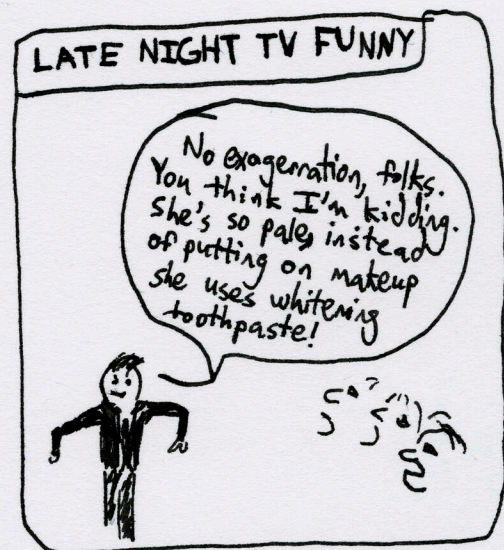 LATE NIGHT TV FUNNY
No exagerration, folks.
You think I'm kidding.
She's so pale, instead
of putting on makeup
she uses whitening
toothpaste!